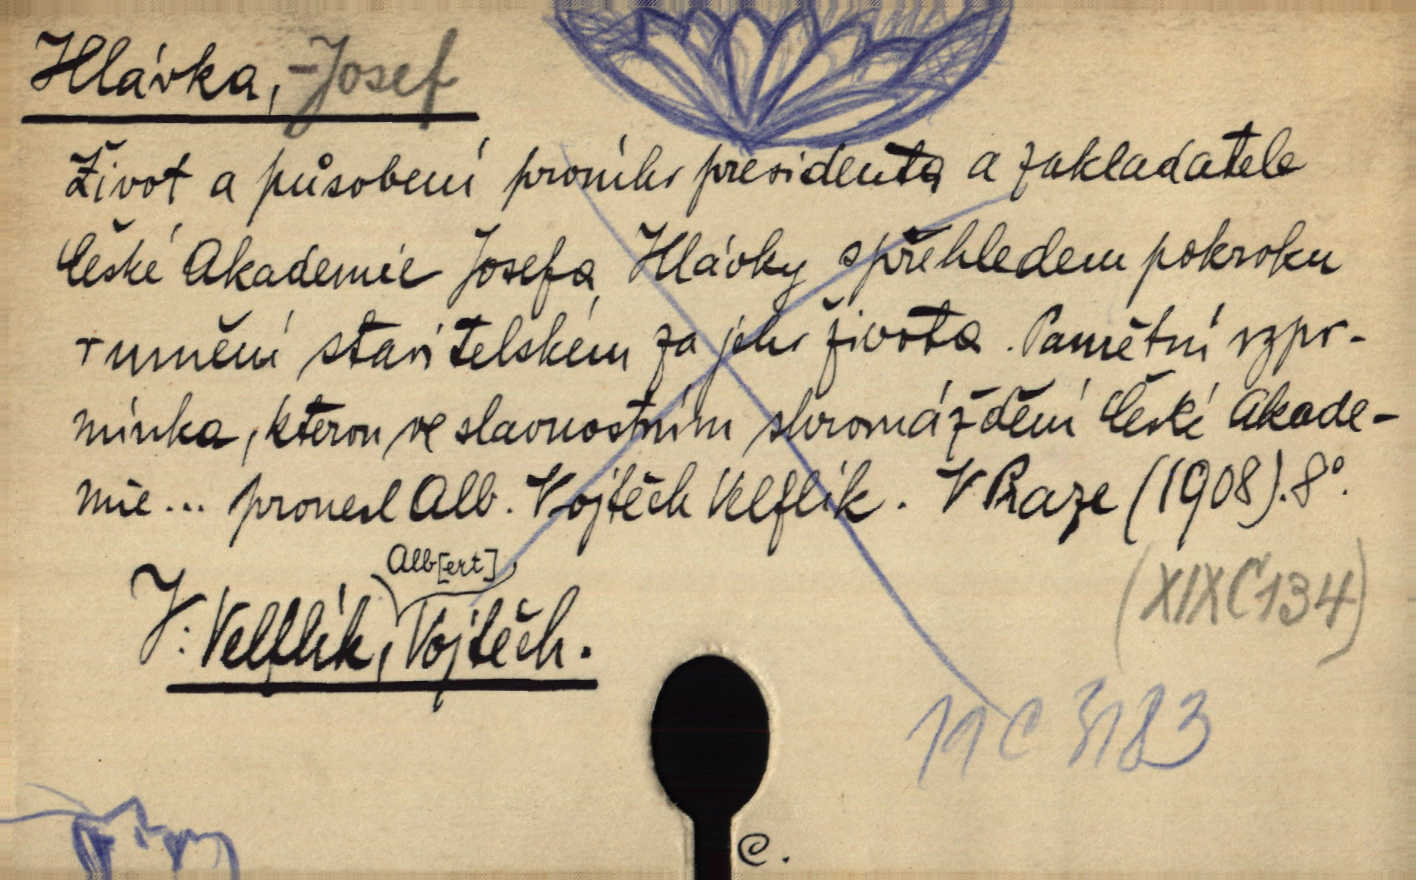 Hlávka, - Josef
Život a působení prvního presidenta a zakladatele
České Akademie Josefa Hlávky s přehledem pokroku
v umění stavitelském za jeho života. Pamětní vzpo-
mínka, kterou ve slavnostním shromáždění České Akade-
mie... pronesl Alb. Vojtěch Velflík. V Praze (1908). 8°.
Alb[ert]
V: Velflík, Vojtěch.
(XIX C 134)
19 C 3183
C.